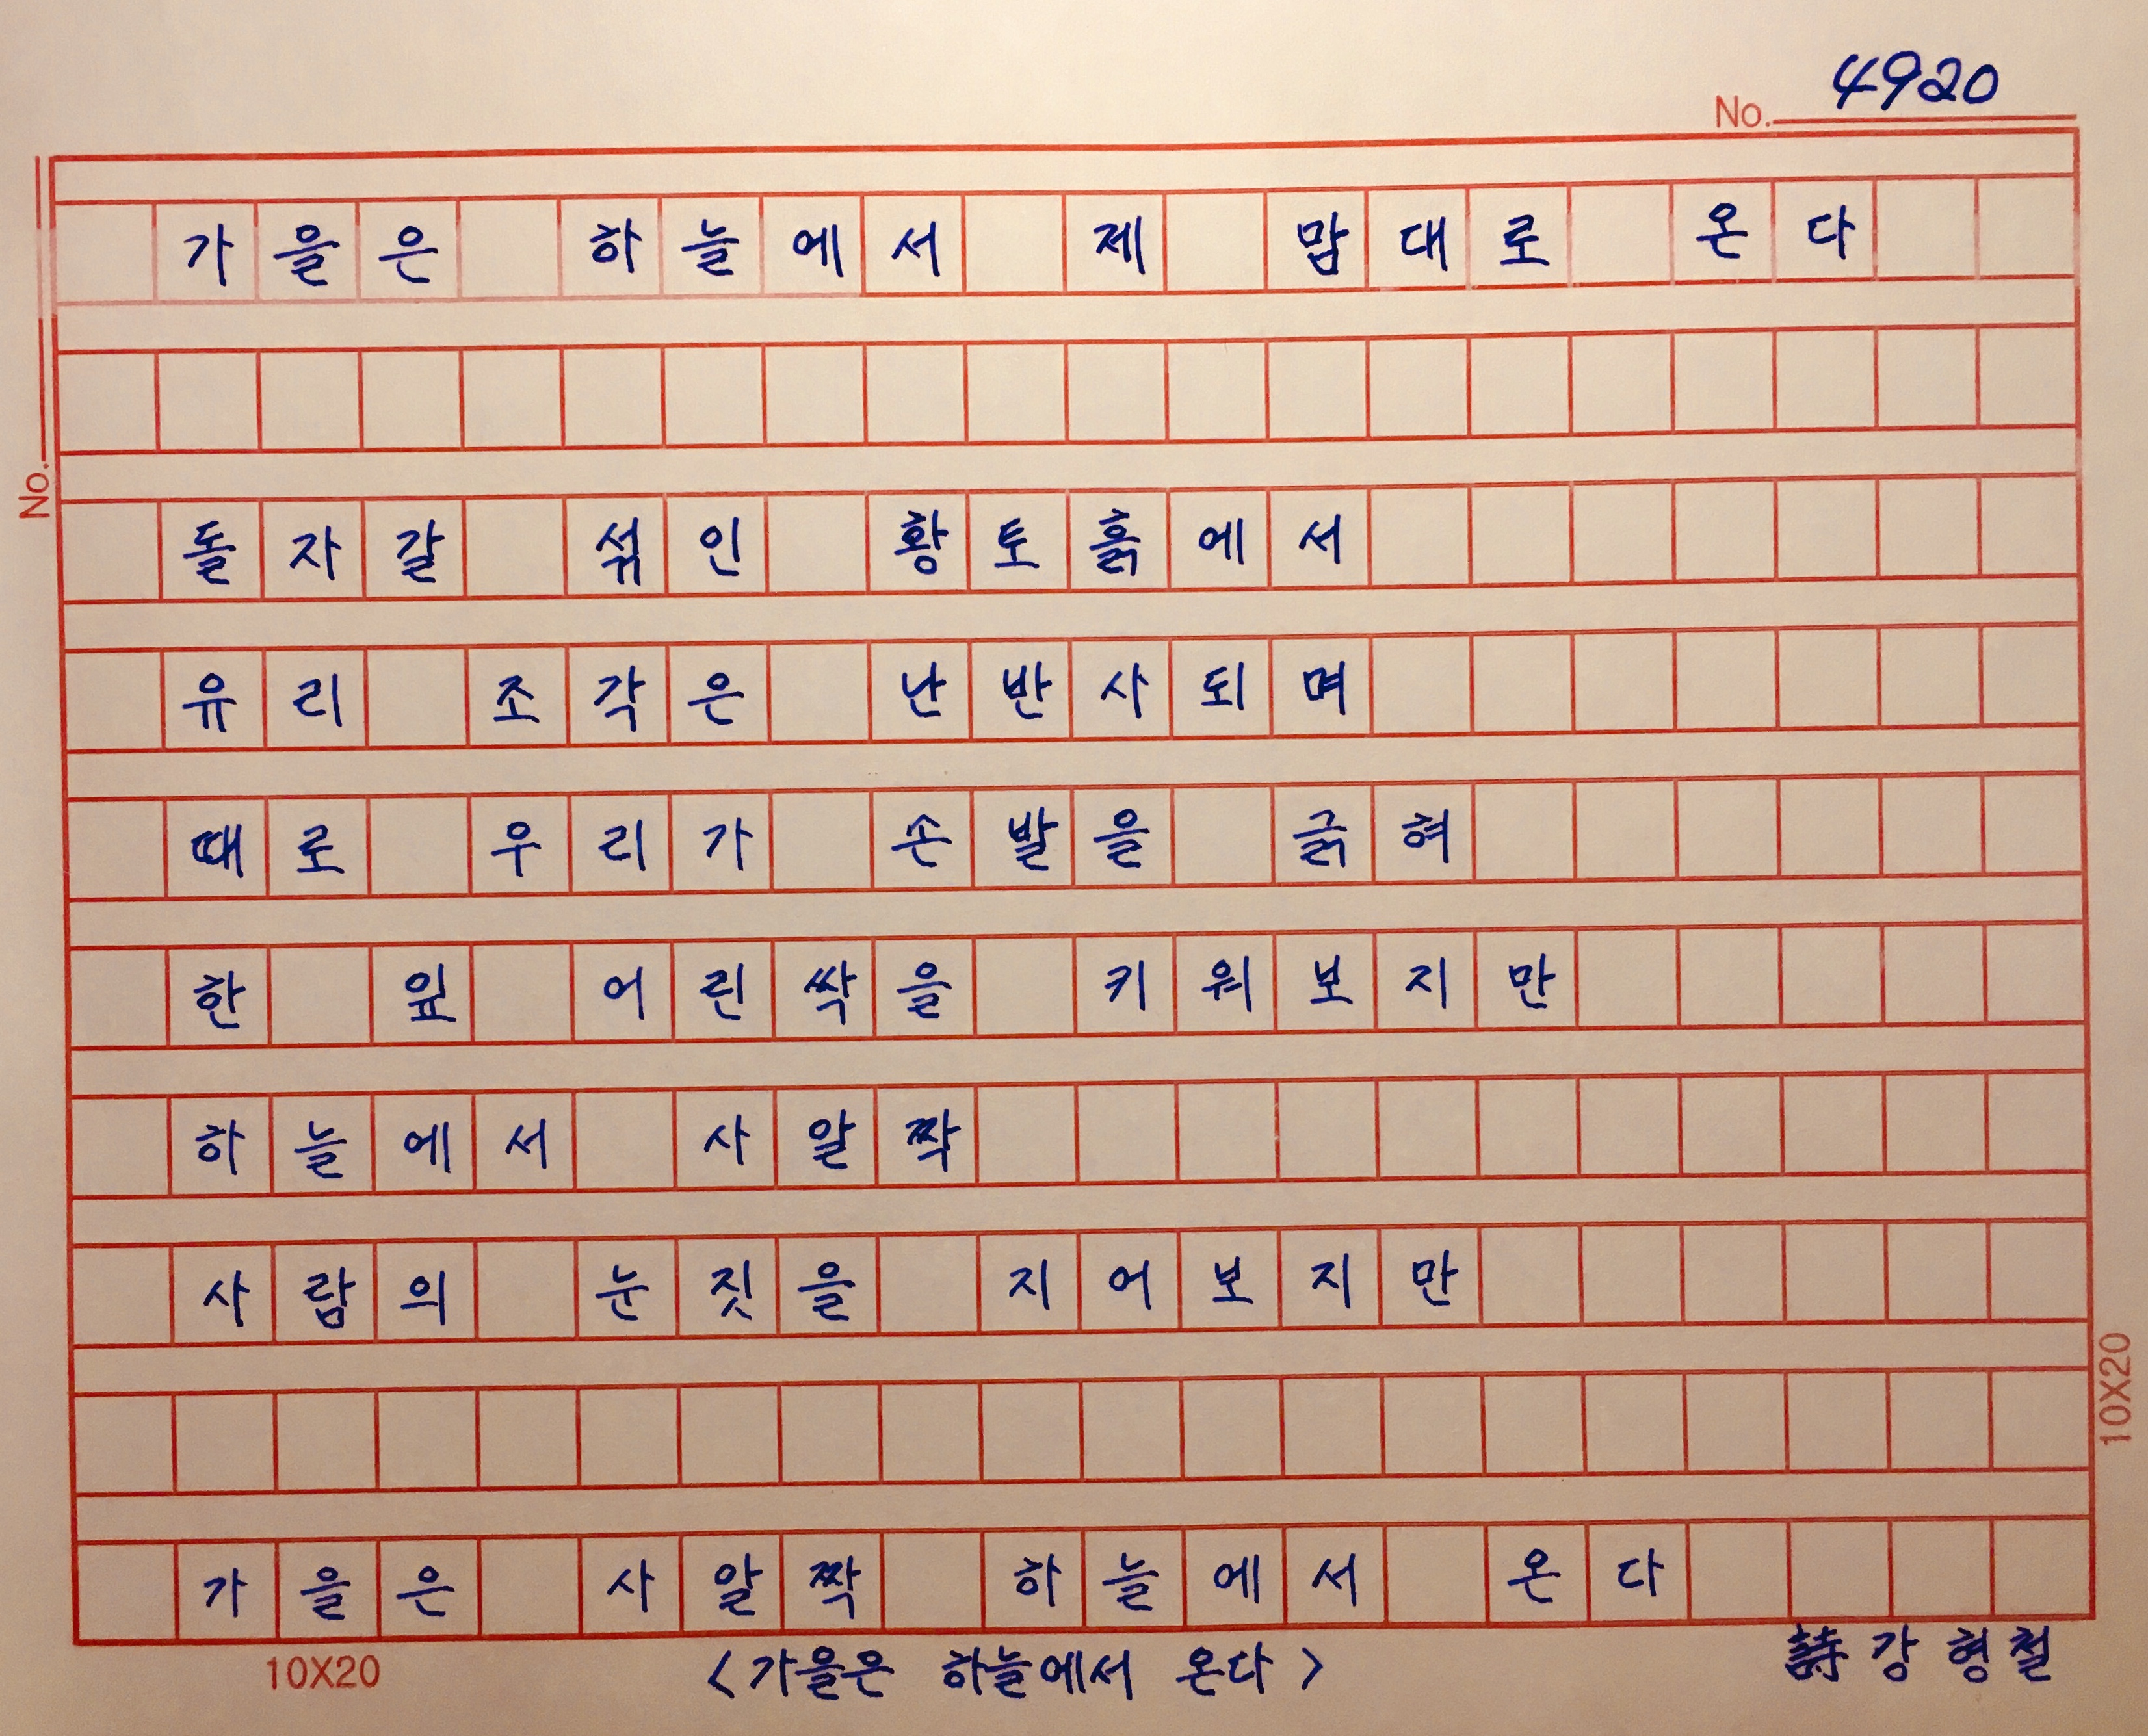 No. 4920
가을은 하늘에서 제 맘대로 온다
No.
돌자갈 섞인 황토흙에서
유리 조각은 난반사되며
때로 우리가 손발을 긁혀
한 잎 어린싹을 키워보지만
하늘에서 사알짝
사람의 눈짓을 지어보지만
10X20
가을은 사알짝 하늘에서 온다
10X20 <가을은 하늘에서 온다> 詩 강형철